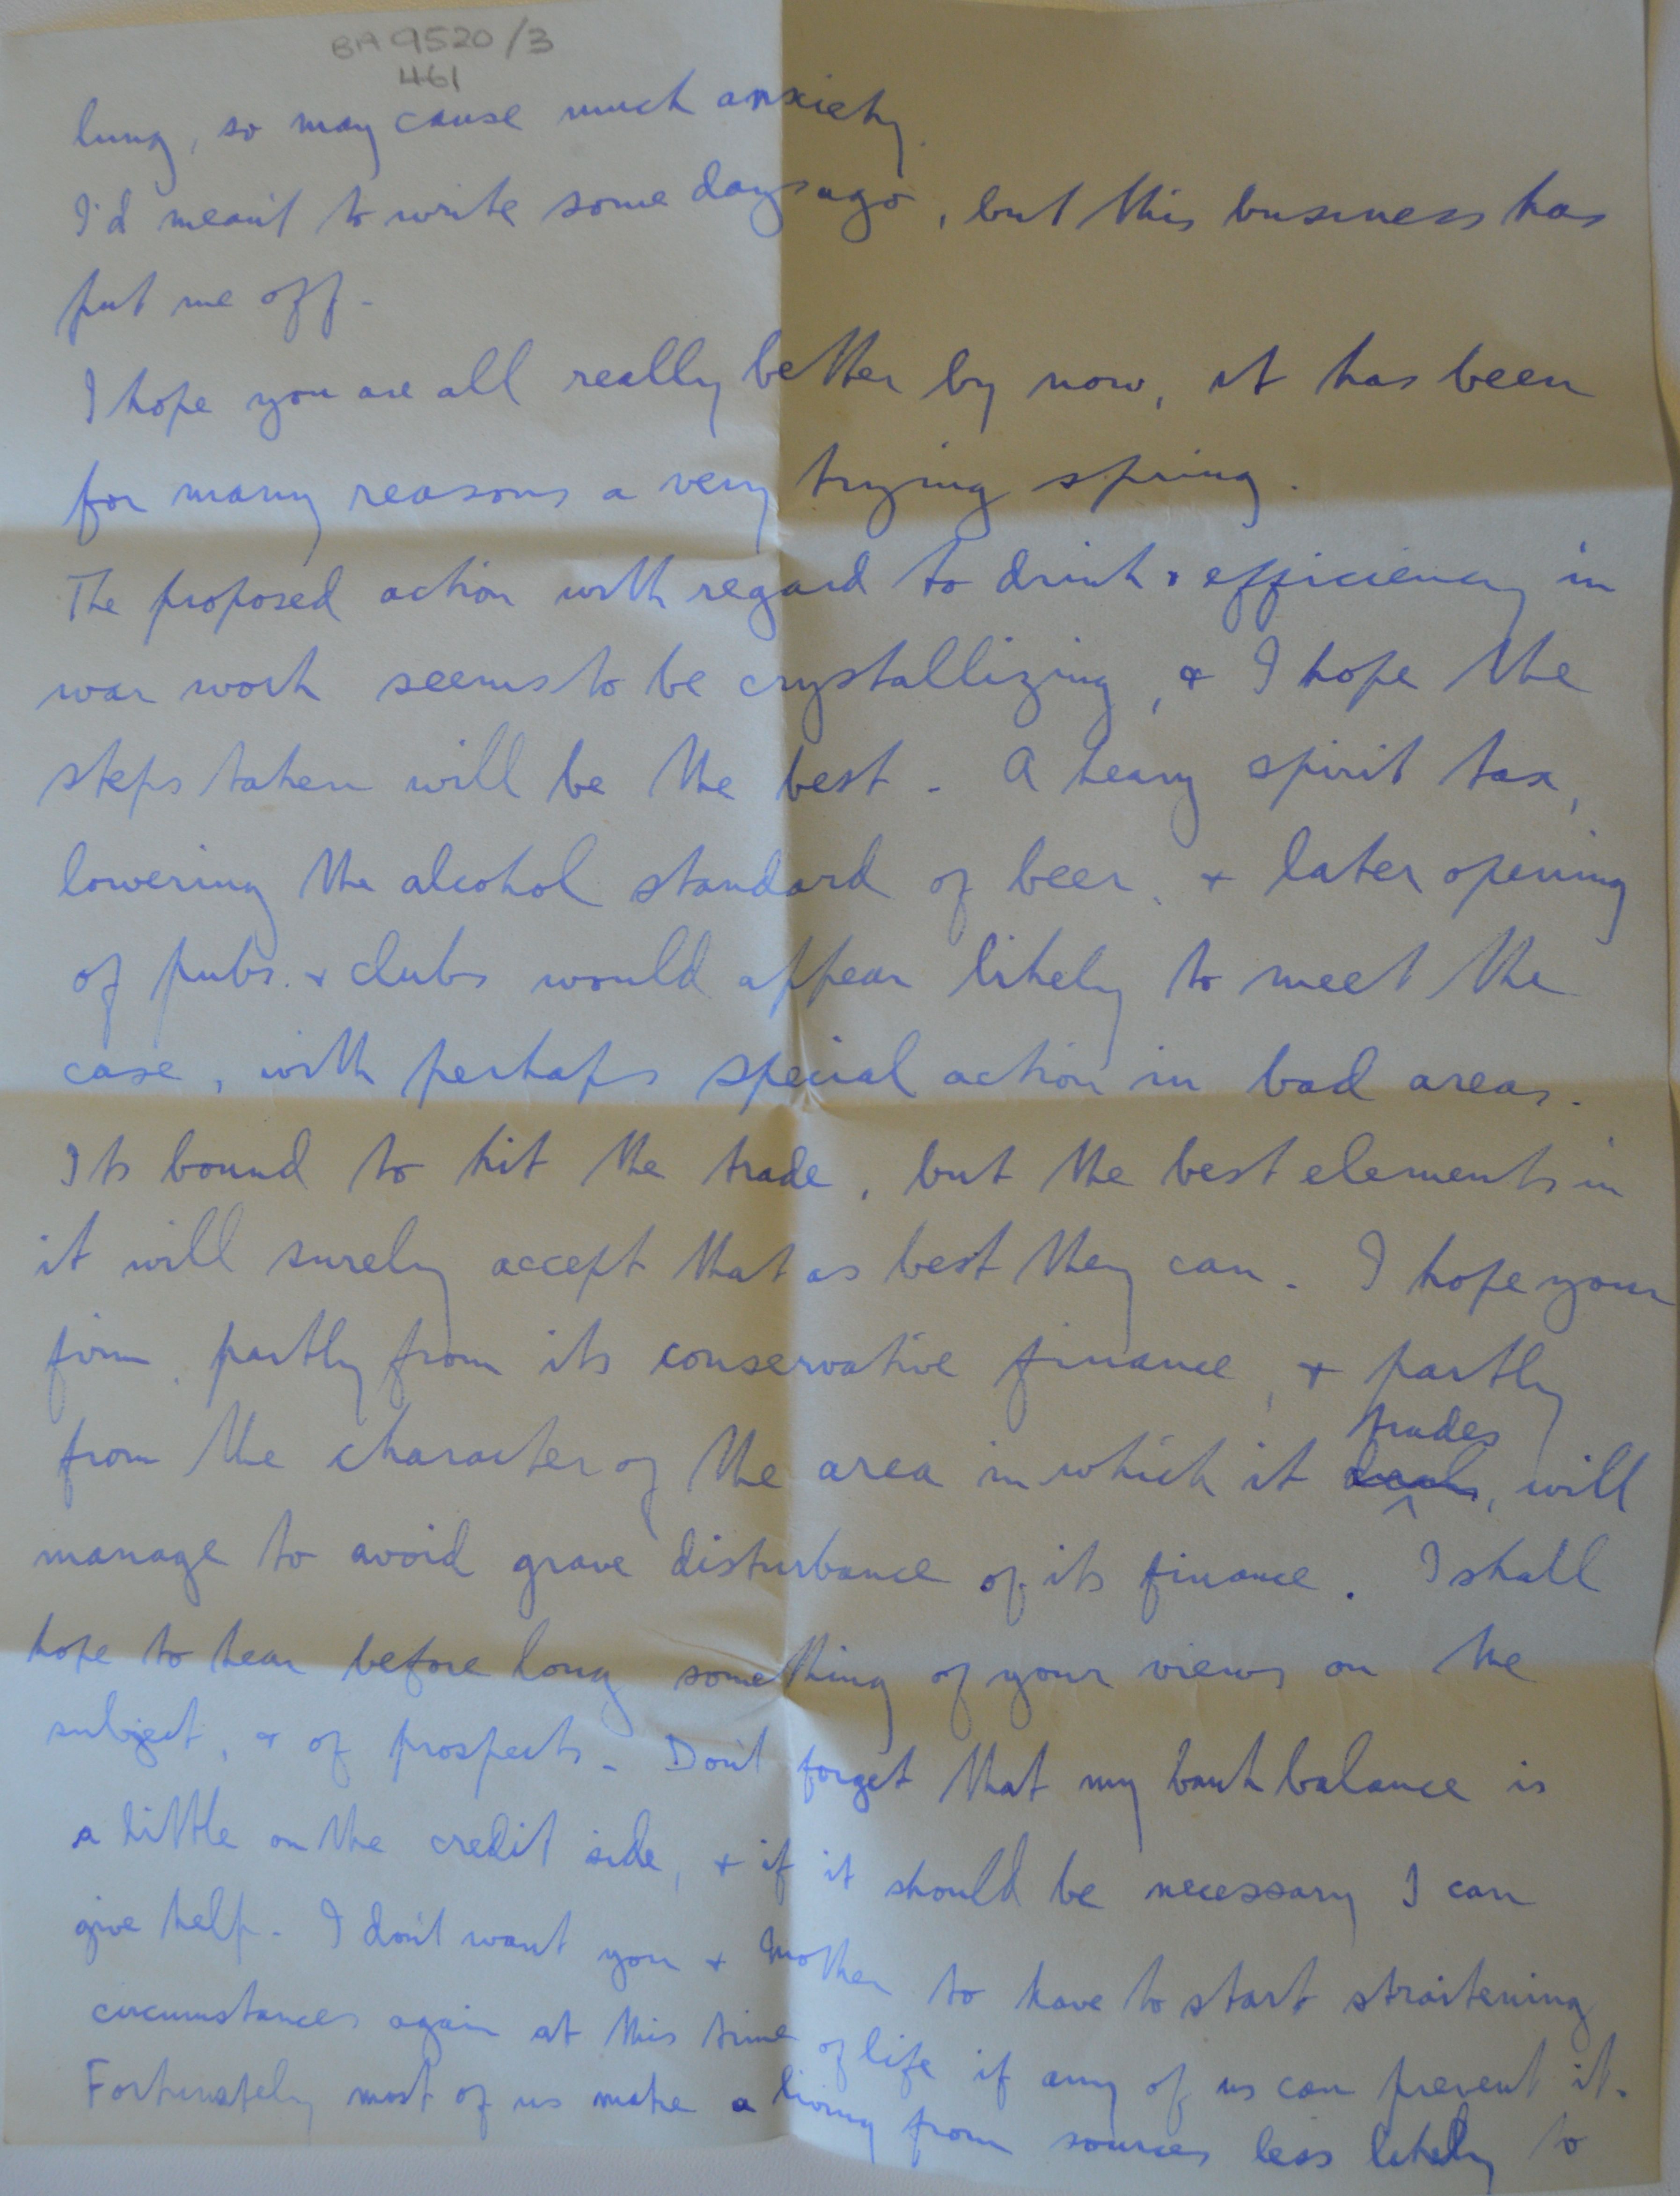 BA 9520/3
461
lung, so may cause much anxiety.
I'd meant to write some days ago, but this business has
put me off.
I hope you are all really better by now, it has been
for many reasons a very trying spring.
The proposed action with regard to drink & efficiency in
war work seems to be crystallizing, & I hope the
steps taken will be the best. A heavy spirit tax,
lowering the alcohol standard of beer, & later opening
of pubs. & clubs would appear likely to meet the
case, with perhaps special action in bad areas.
Its bound to hit the trade, but the best elements in
it will surely accept that as best they can. I hope your
firm, partly from its conservative finance, & partly
trades
from the character of the area in which it deals, will
manage to avoid grave disturbance of its finance. I shall
hope to hear before long something of your views on the
subject, & of prospects. Don't forget that my bank balance is
a little on the credit side, & if it should be necessary I can
give help. I don't want you & Mother to have to start straitening
circumstances again at this time of life if any of us can prevent it.
Fortunately most of us make a living from sources less likely to